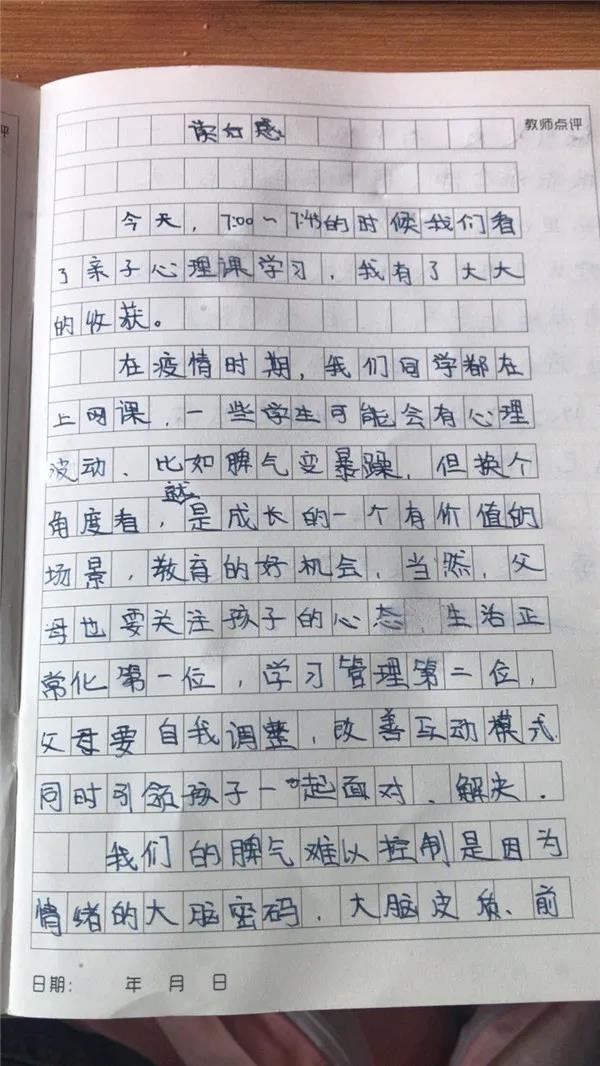 教师点评
评
读后感
今天，7:00～7:45的时候我们看
了亲子心理课学习，我有了大大
的收获。
在疫情时期，我们同学都在
上网课，一些学生可能会有心理
波动、比如脾气变暴躁，但换个
角度看，就是成长的一个有价值的
场景，教育的好机会，当然，父
母也要关注孩子的心态，生活正
常化第一位，学习管理第二位，
父母要自我调整，改善互动模式
同时引领孩子一起面对、解决．
我们的脾气难以控制是因为
情绪的大脑密码．大脑皮质、前
日期： 年 月 日